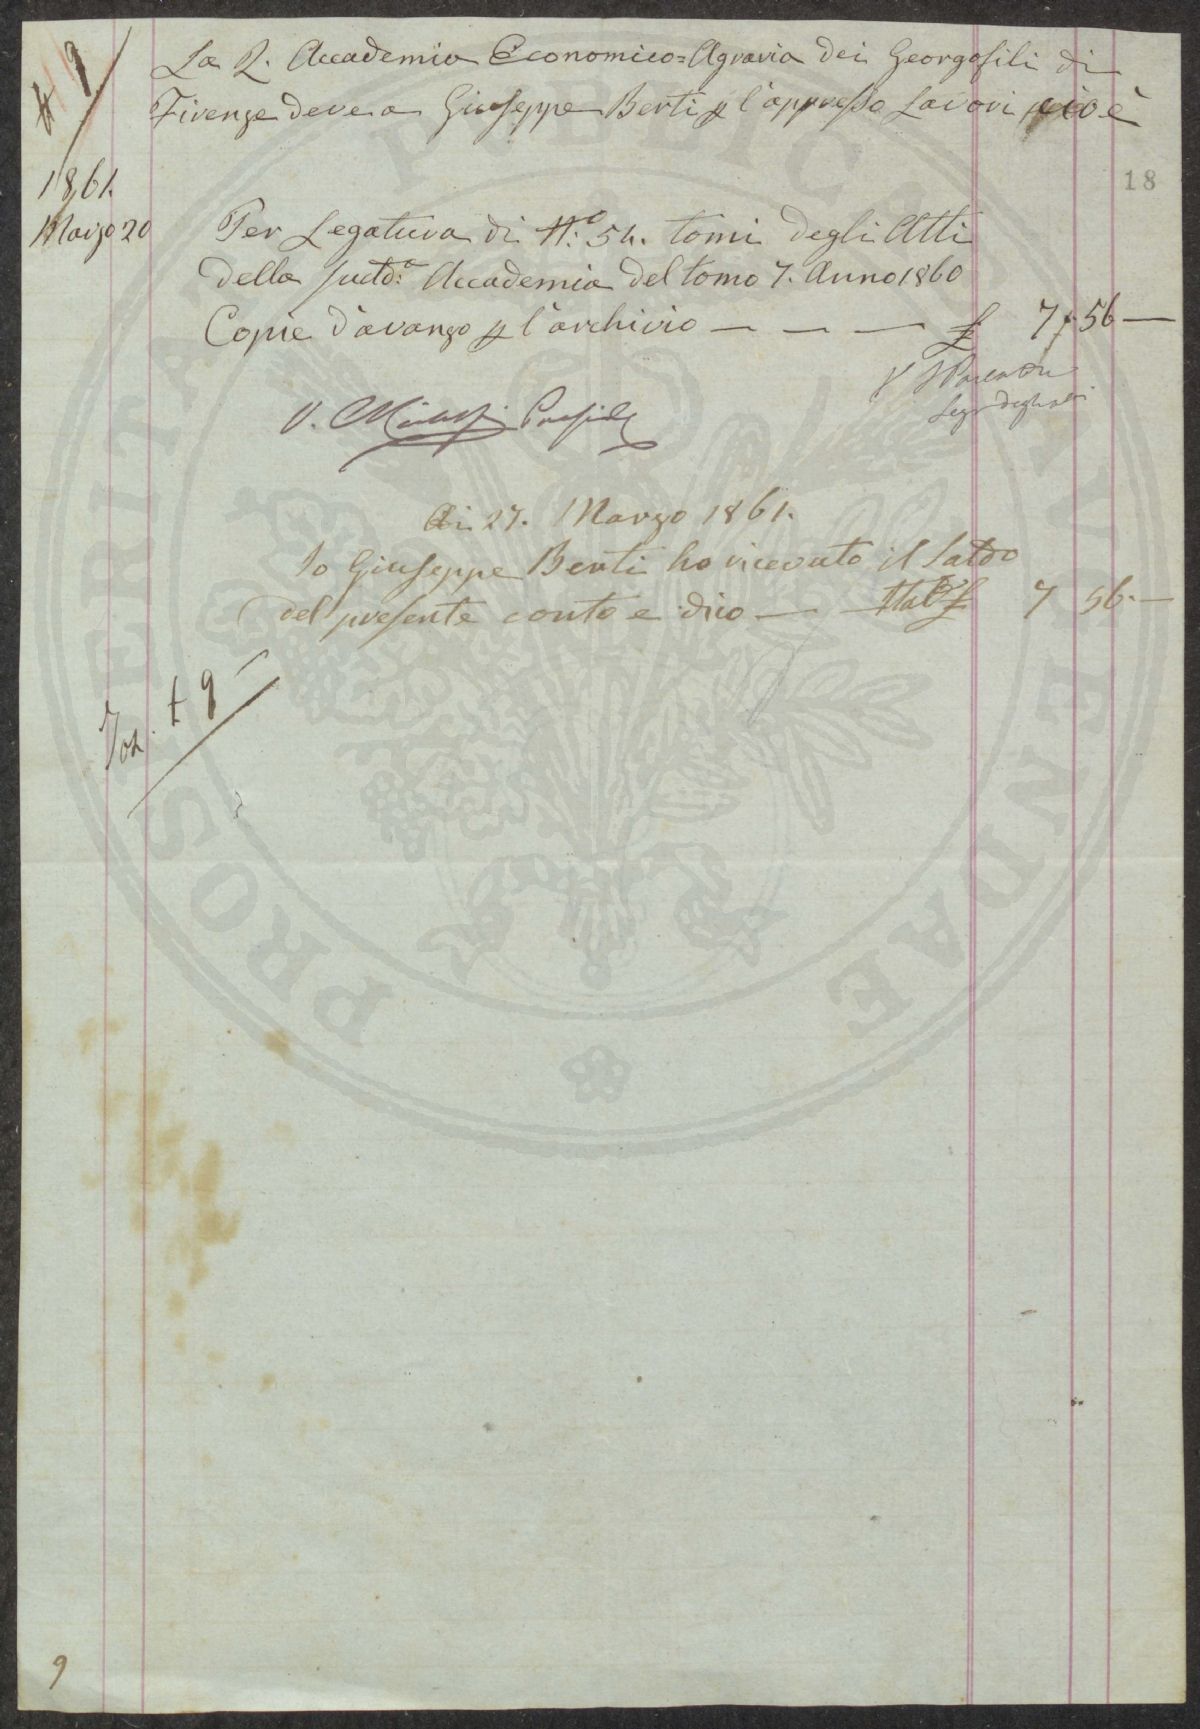 9
La R. Accademia Economico=Agraria dei Georgofili di
Firenze deve a Giuseppe Berti p l'appresso Lavori cioè
18
1861.
Marzo 20
Per Legatura di N:o 54. tomi degli Atti
della sudd:a Accademia del tomo 7. Anno 1860
Copie d'avanzo p l'archivio — — — £ 7 , 56 —
V.
Segr degli Atti
V. Preside
Di 27. Marzo 1861.
Io Giuseppe Berti ho ricevuto il Saldo
del presente conto e dico — Ital £ 7 56. —
9
9
PROSPERITATI PVBLICAE AVGENDAE